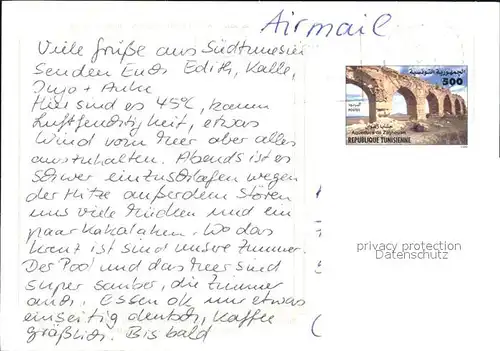 Airmail
Viele Grüße aus Südtunesien
senden Euch Edith, Kalle,
Ingo + Anke
Hier sind es 45°C, kaum
Luftfeuchtigkeit, etwas
Wind vom Meer aber alles
auszuhalten. Abends ist es
schwer einzuschlafen wegen
der Hitze außerdem stören
uns viele Mücken und ein
paar Kakalaken. Wo das
Kreuz ist sind unsere Zimmer.
Der Pool und das Meer sind
super sauber, die Zimmer
auch. Essen ok nur etwas
einseitig deutsch, Kaffee
gräßlich. Bis bald
الجمهورية التونسية
500
البريد
POSTES
حنايا زغوان
Aqueduc de Zaghouan
REPUBLIQUE TUNISIENNE
privacy protection
Datenschutz